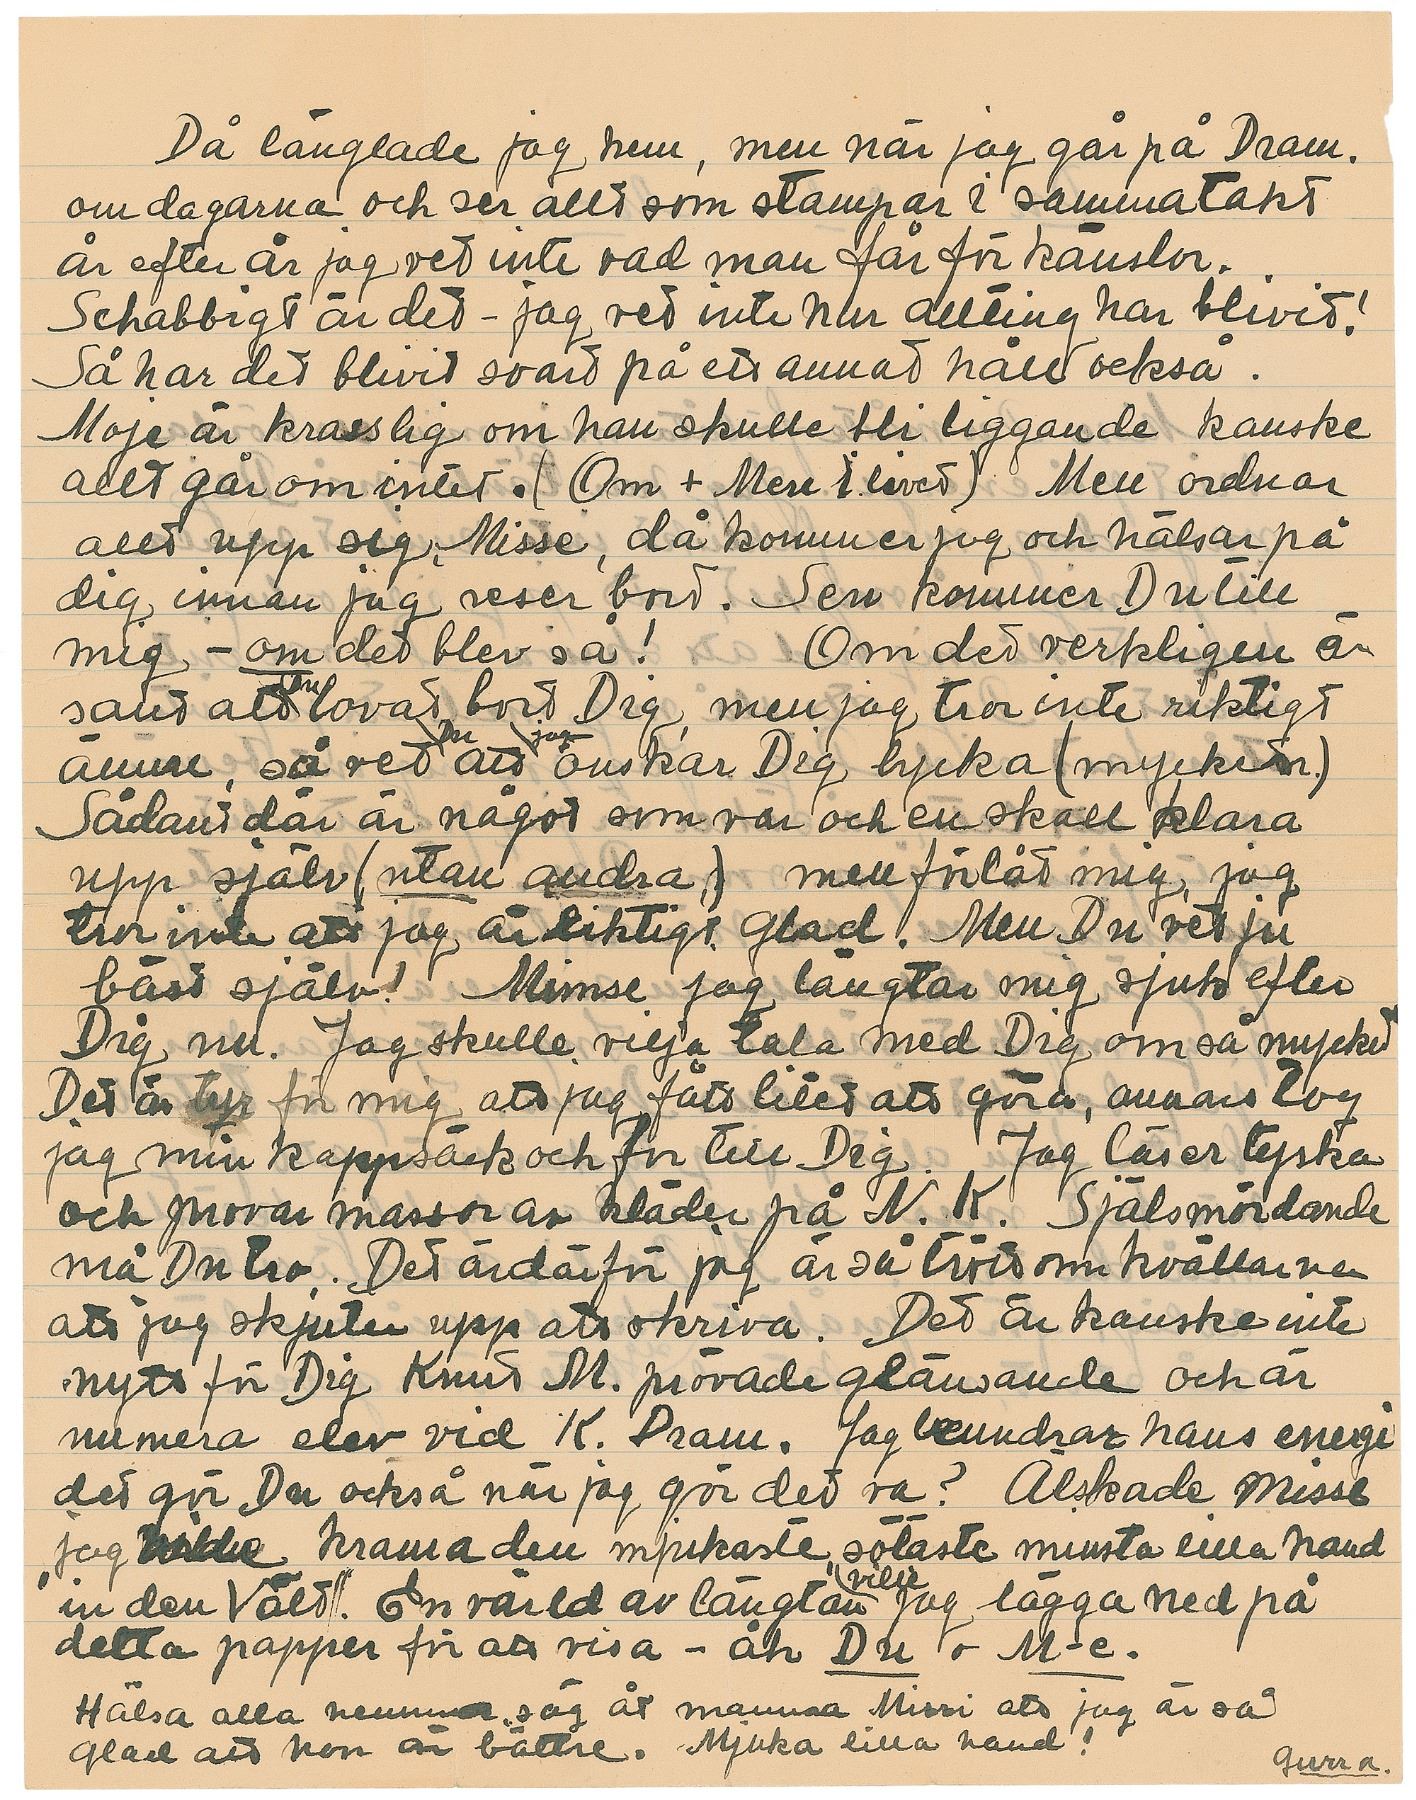 Då länglade jag hem, men när jag går på Dram.
om dagarna och ser allt som stampar i samma takt
år efter år jag vet inte vad man får för känslor.
Schabbigt är det - jag vet inte hur allting har blivit!
Så har det blivit svart på ett annat håll också.
Moje är krasslig om han skulle bli liggande kanske
allt går om intet. (Om + Men i livet) Men ordnar
allt upp sig, Misse, då kommer jag och hälsar på
dig innan jag reser bort. Sen kommer Du till
mig - om det blev så! Om det verkligen är
sant att Du lovat bort Dig, men jag tror inte riktigt
ännu, så vet Du att jag önskar Dig lycka (mycken.)
Sådant där är något som var och en skall klara
upp själv (utan andra,) men förlåt mig, jag
tror inte att jag är riktigt glad. Men Du vet ju
bäst själv! Mimse jag längtar mig sjuk efter
Dig nu. Jag skulle vilja tala med Dig om så mycket
Det är tyr för mig att jag fått litet att göra, annars tog
jag min kappsäck och for till Dig. Jag läser tyska
och provar massor av kläder på N. K. Själsmördande
må Du tro. Det är därför jag är så trött om kvällarna
att jag skjuter upp att skriva. Det är kanske inte
nytt för Dig Knut M. prövade glänsande och är
numera elev vid K. Dram. Jag beundrar hans energi
det gör Du också när jag gör det va? Älskade Misse
jag ville krama den mjukaste, sötaste minsta lilla hand
"in den Vält". En värld av längtan ville jag lägga ned på
detta papper för att visa - åh Du o M-e.
Hälsa alla hemma, säg åt mamma Mirri att jag är så
glad att hon är bättre. Mjuka lilla hand!
Gurra.